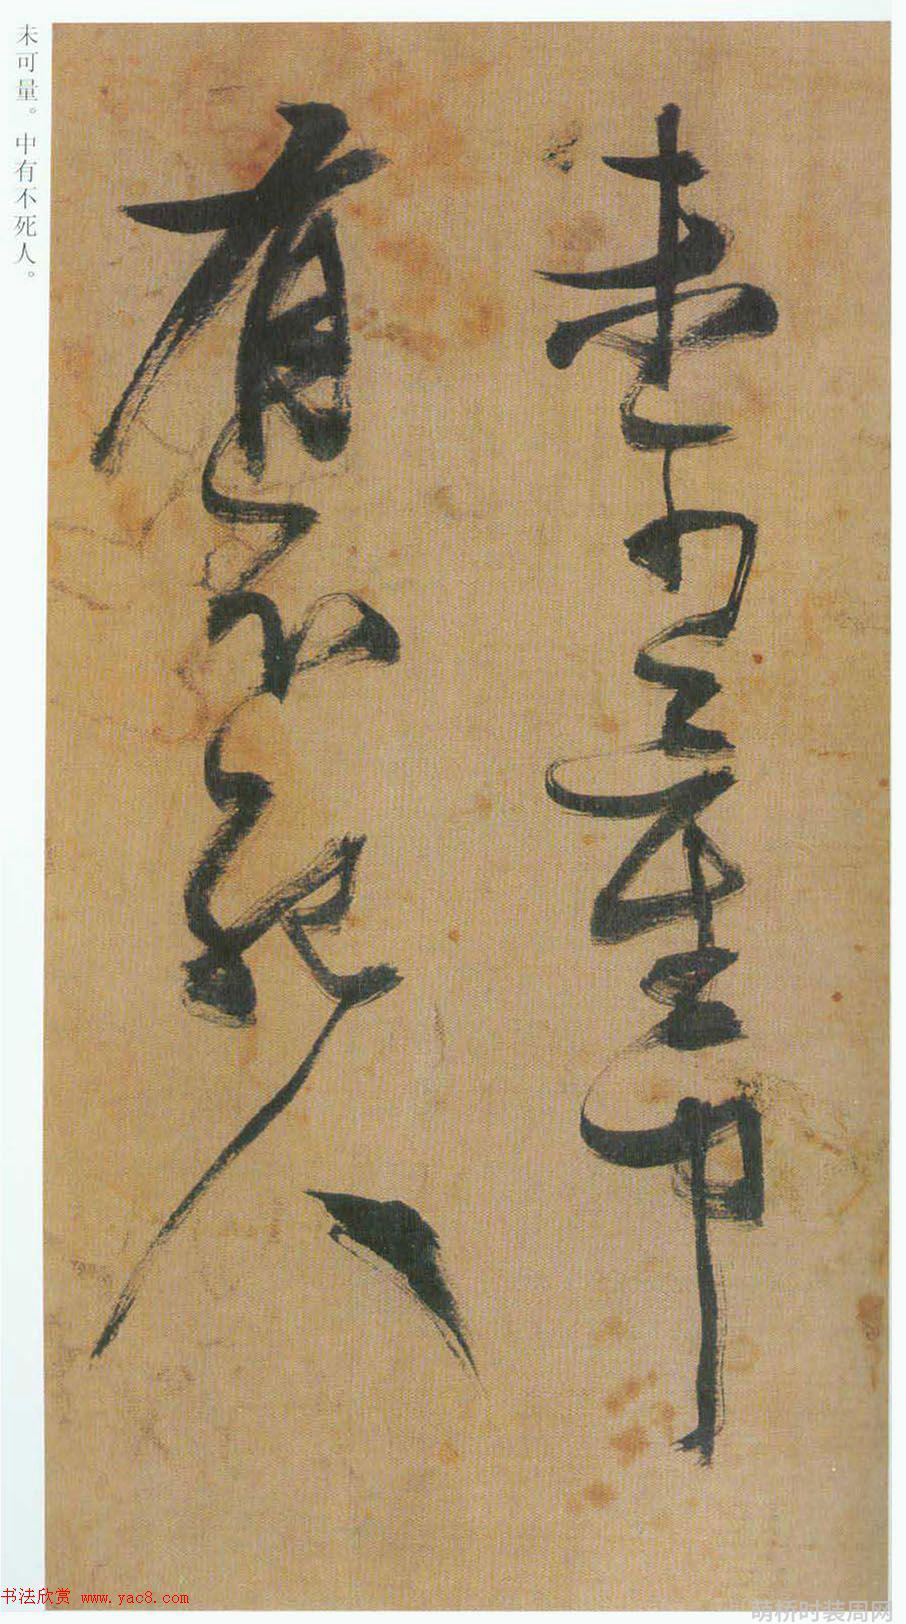 未可量中
有不死人
未可量。中有不死人。
书法欣赏 www.yac8.com
萌桥时装周网